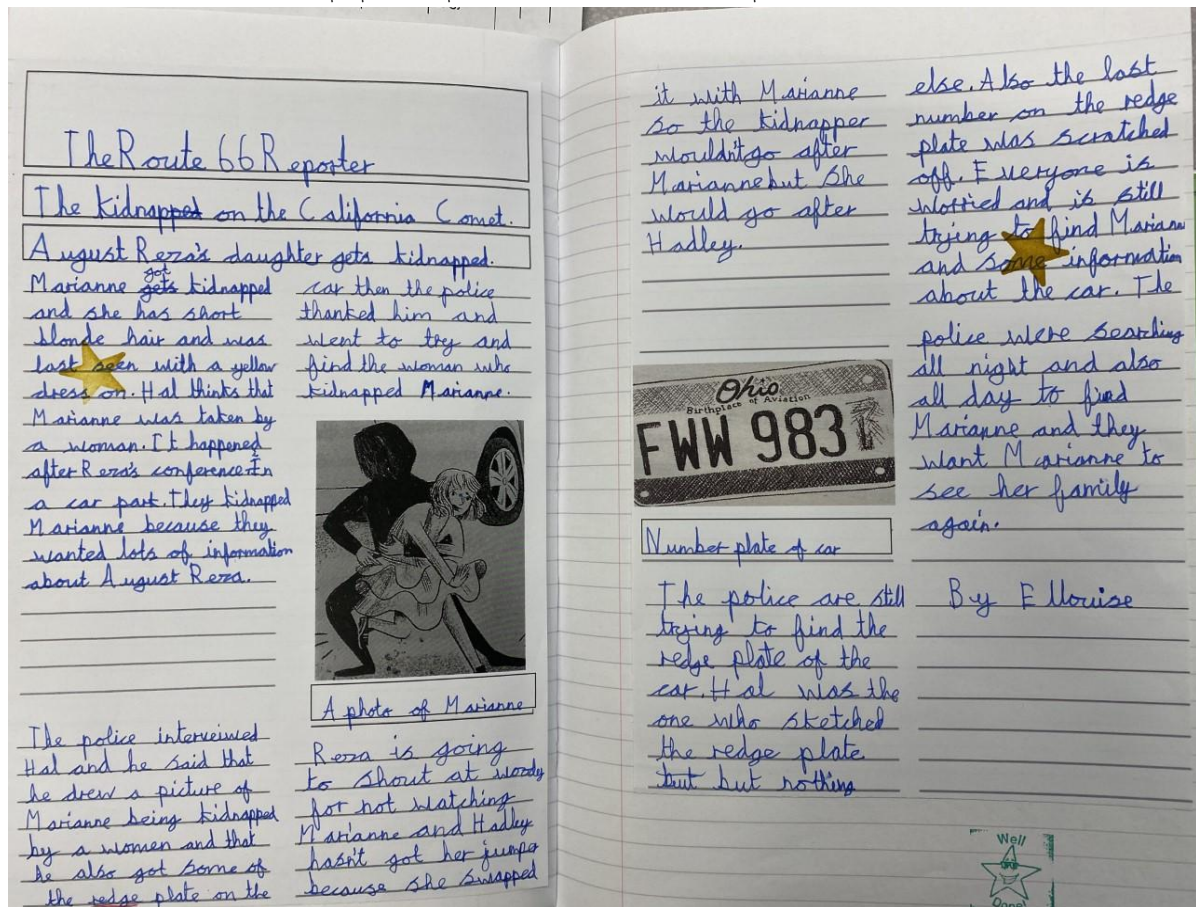 The Route 66 Reporter
The kidnapped on the California Comet.
August Reza's daughter gets kidnapped.
Marianne gets got kidnapped
and she has short
blonde hair and was
last seen with a yellow
dress on. Hal thinks that
Marianne was taken by
a woman. It happened
after Reza's conference In
a car park. They kidnapped
Marianne because they
wanted lots of information
about August Reza.
The police interveiwed
Hal and he said that
he drew a picture of
Marianne being kidnapped
by a women and that
he also got some of
the redge plate on the
car then the police
thanked him and
went to try and
find the woman who
kidnapped Marianne.
A photo of Marianne
Reza is going
to shout at woody
for not watching
Marianne and Hadley
hasn't got her jumper
because she swapped
it with Marianne
so the kidnapper
wouldn't go after
Marianne but She
would go after
Hadley.
Ohio
Birthplace of Aviation
FWW 983
Number plate of car
The police are still
trying to find the
redge plate of the
car. Hal was the
one who sketched
the redge plate
but but nothing
else. Also the last
number on the redge
plate was scratched
off. Everyone is
worried and is still
trying to find Mariann
and some information
about the car. The
police were searching
all night and also
all day to find
Marianne and they
want Marianne to
see her family
again.
By Ellouise
Well
Done!